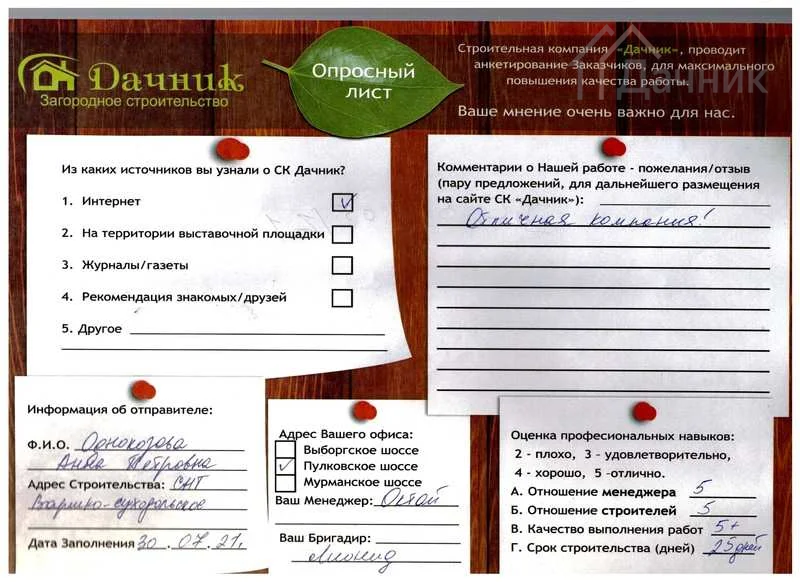 Дачник
Загородное строительство
Опросный
лист
Строительная компания «Дачник», проводит
анкетирование Заказчиков, для максимального
повышения качества работы.
Ваше мнение очень важно для нас.
дачник
Из каких источников вы узнали о СК Дачник?
1. Интернет
2. На территории выставочной площадки
3. Журналы/газеты
4. Рекомендация знакомых/друзей
5. Другое
Комментарии о Нашей работе - пожелания/отзыв
(пару предложений, для дальнейшего размещения
на сайте СК «Дачник»):
Отличная компания!
Информация об отправителе:
Ф.И.О. Однокозова
Анна Петровна
Адрес Строительства: СНТ
-суходольское
Дата Заполнения 30.07.21.
Адрес Вашего офиса:
Выборгское шоссе
Пулковское шоссе
Мурманское шоссе
Ваш Менеджер: Остай
Ваш Бригадир:
Леонид
Оценка професиональных навыков:
2 - плохо, 3 - удовлетворительно,
4 - хорошо, 5 -отлично.
А. Отношение менеджера 5
Б. Отношение строителей 5
В. Качество выполнения работ 5+
Г. Срок строительства (дней) 25 дней